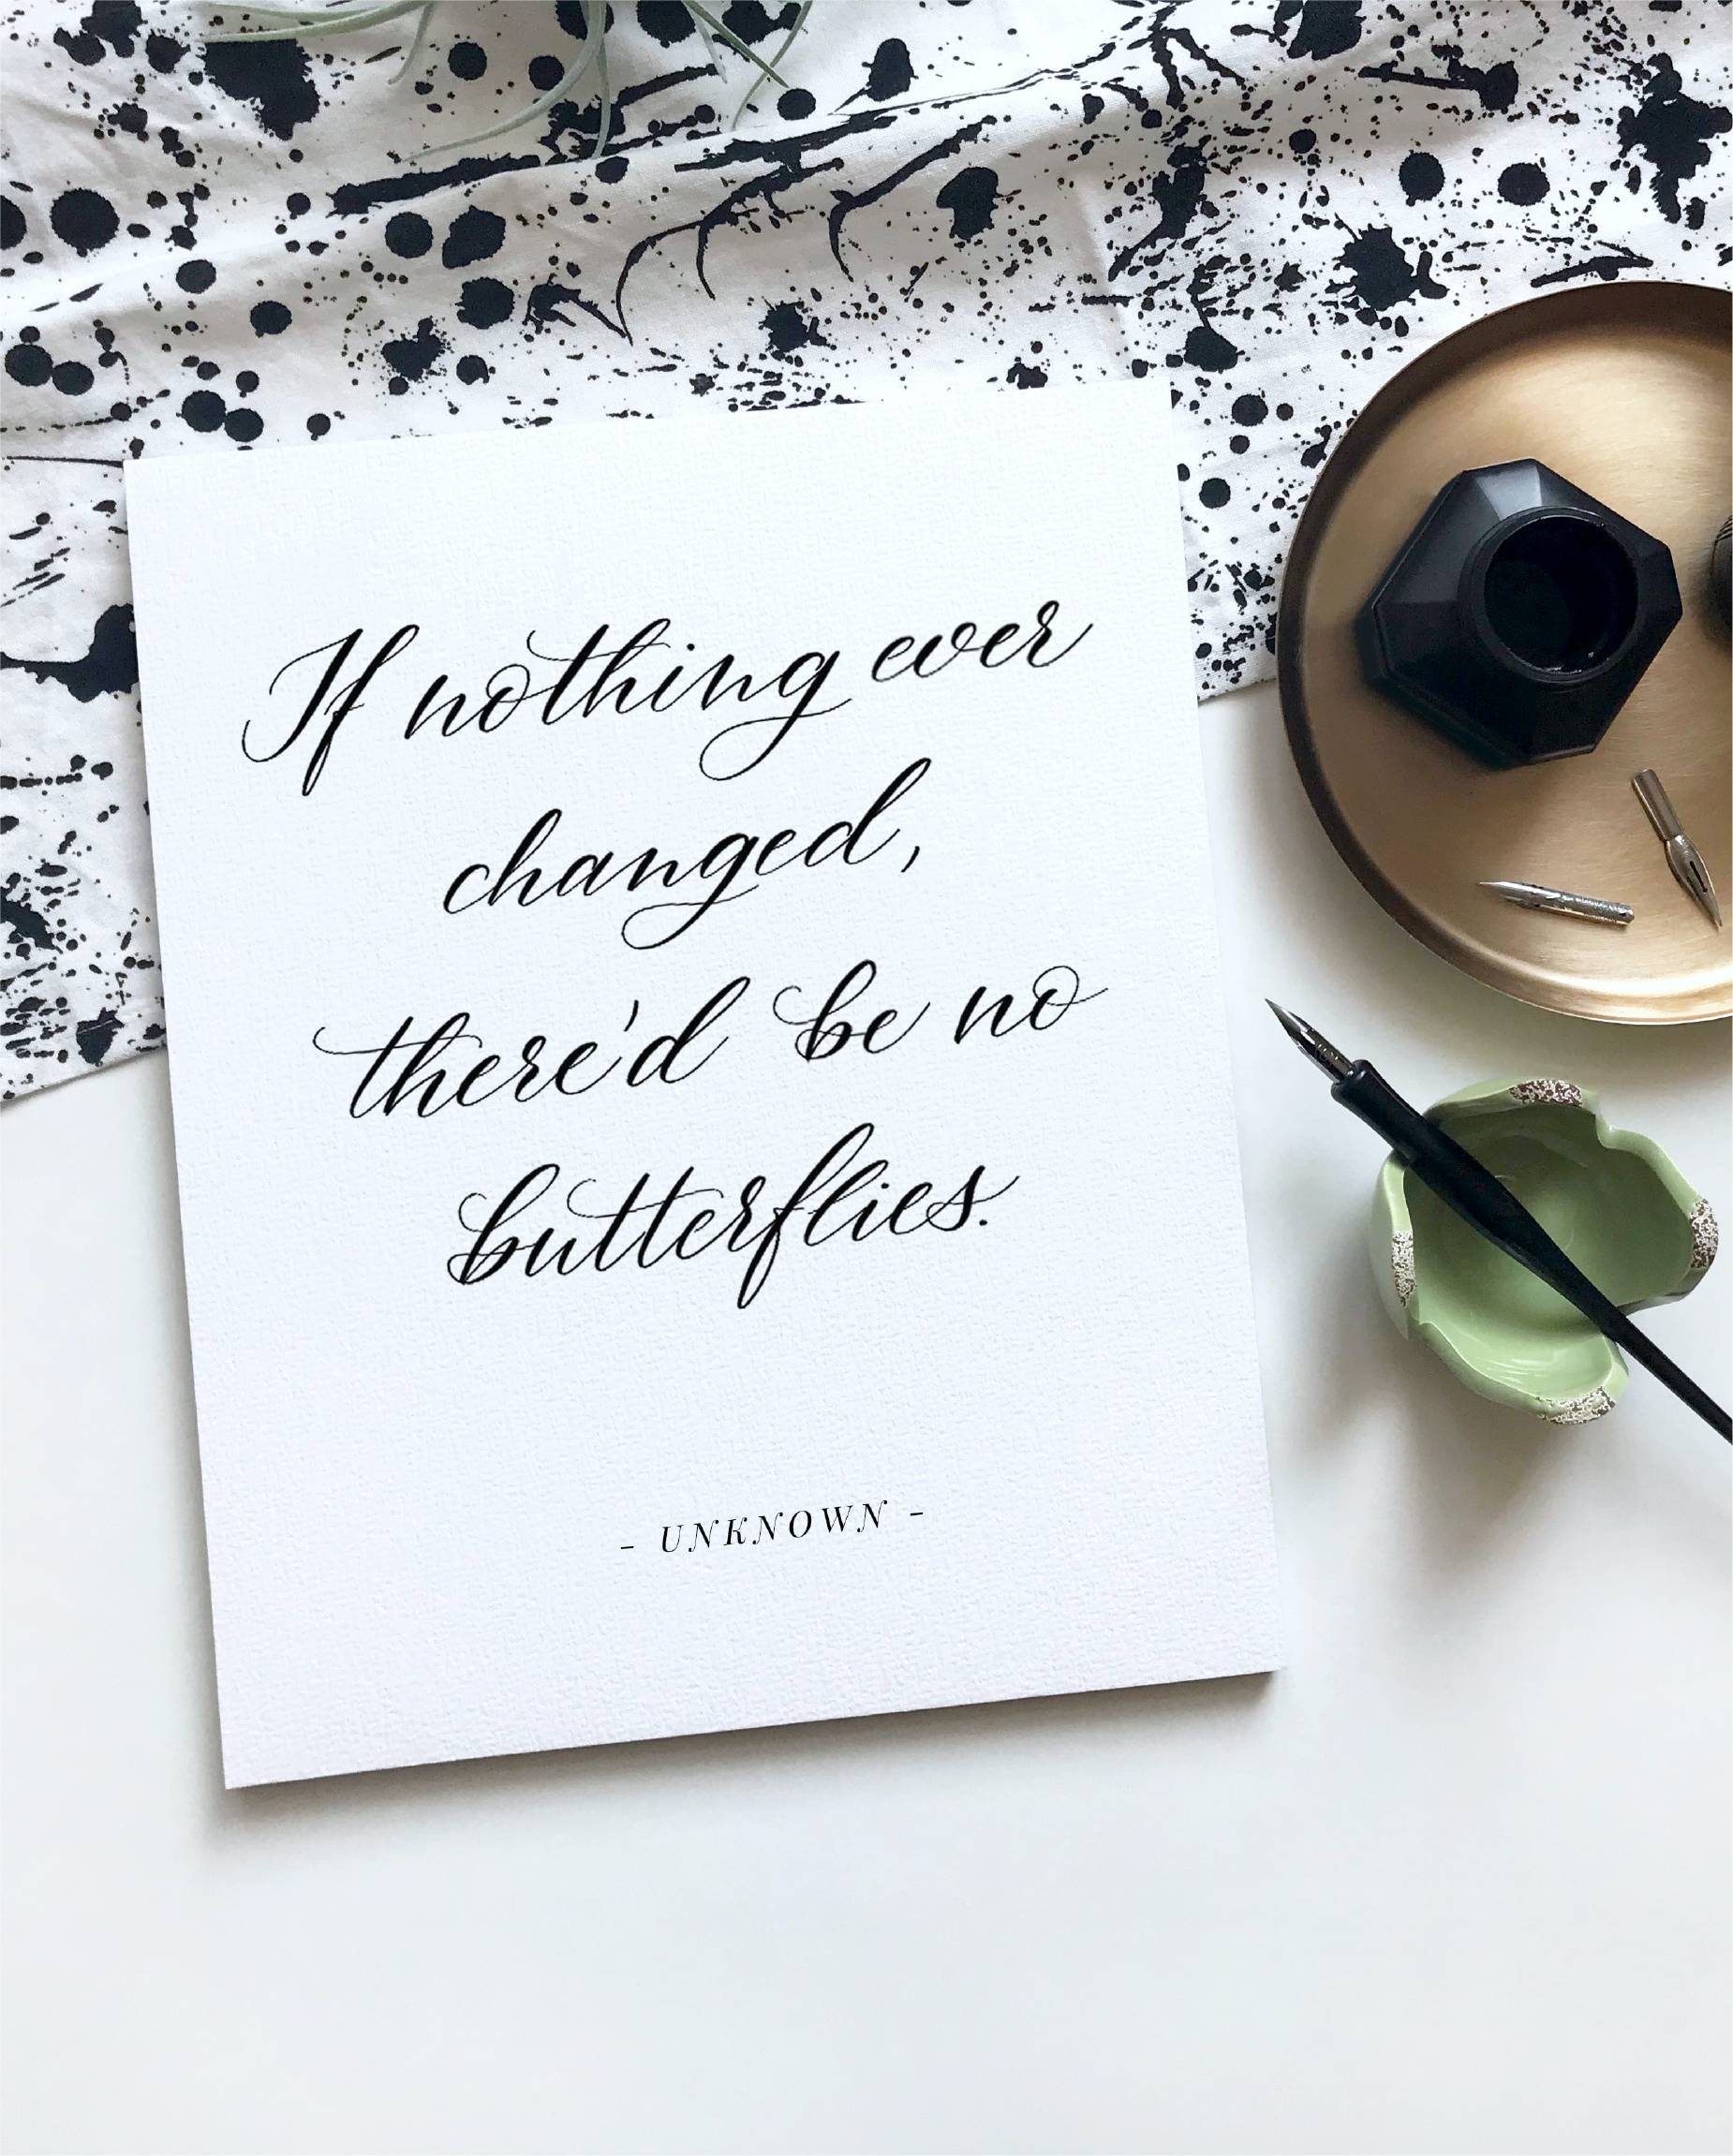 If nothing ever
changed,
there'd be no
butterflies.
- UNKNOWN -